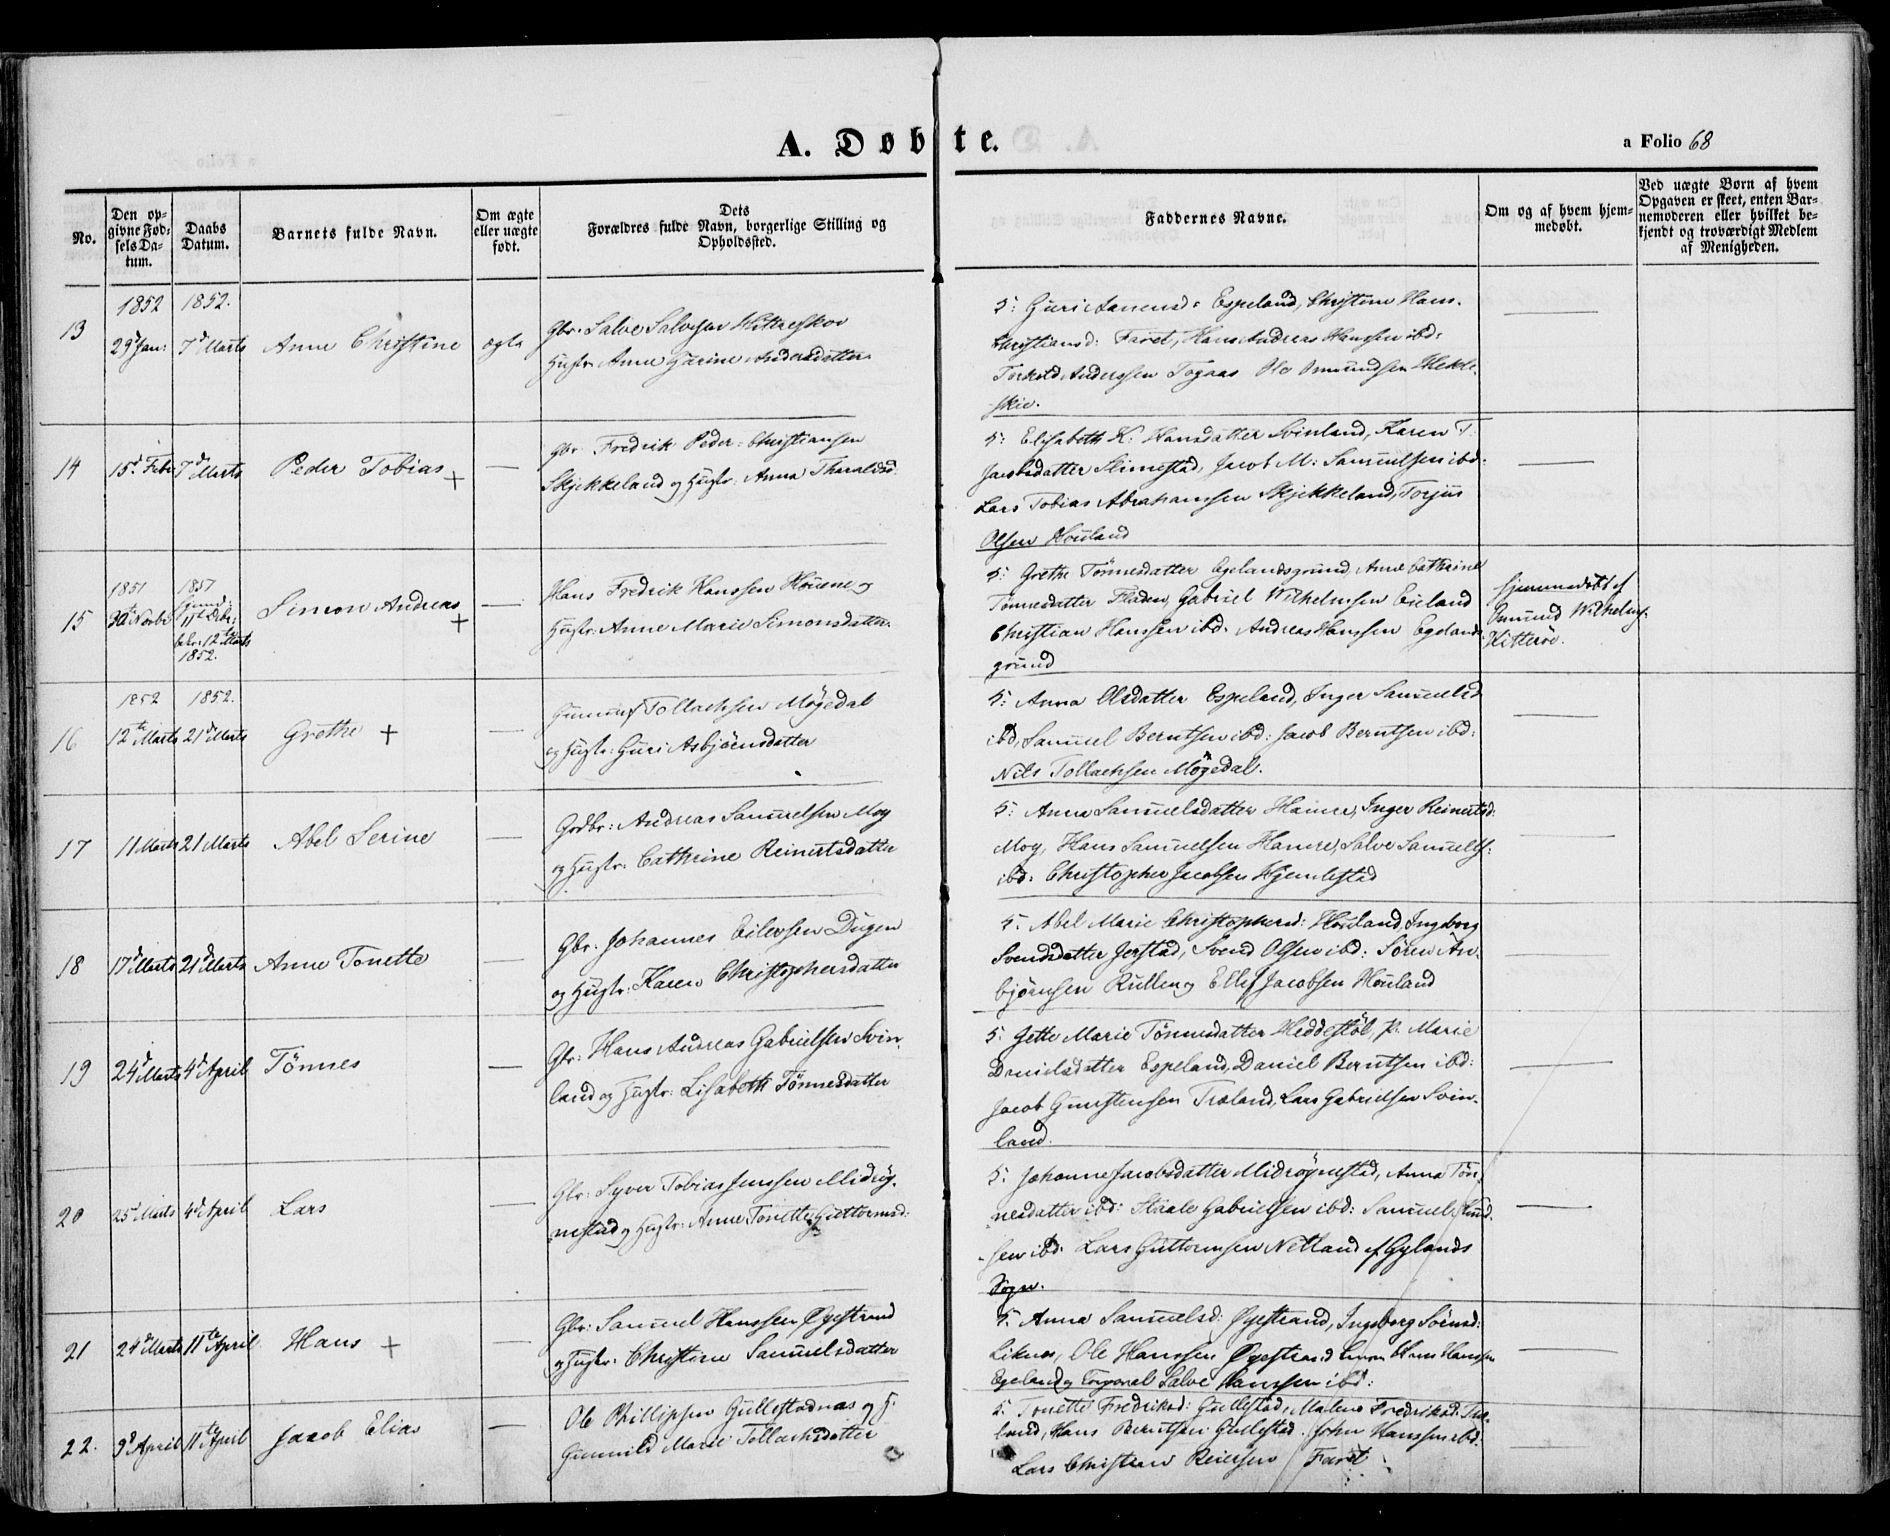 A. Døbte.
a Folio 68
No.
Den op-
givne Fød-
sels Da-
tum.
Daabs
Datum.
Barnets fulde Navn.
Om ægte
eller uægte
født.
Dets
Forældres fulde Navn, borgerlige Stilling og
Opholdssted.
Faddernes Navne.
Om og af hvem hjem-
medøbt.
Ved uægte Børn af hvem
Opgaven er skeet, enten Bar-
nemoderen eller hvilket be-
kjendt og troværdigt Medlem
af Menigheden.
13
1852
29d Jan:
1852.
7d Marts
Anne Christine
ægte
Gbr. Salve Salvesen
Hustr. Anne Gurine Andersdatter
5: Guri Aanensd: Espeland, Christine Hans-
Christiansd: Faret, Hans Andreas Hanssen ibd:
Torkild Anderssen Togaas Ole Omundsen
skie.
14
15d Febr
7d Marts
Peder Tobias +
Gbr. Fredrik Peder Christiansen
Skjekkeland og Hustr: Anna Tharaldsd:
5: Elisabeth K. Hansdatter Svinland, Karen T.
Jacobsdatter Slimestad, Jacob M: Samuelsen ibd:
Lars Tobias Abrahamsen Skjekkeland, Torjus
Olsen Houland
15
1851
30te Novbr
1851
11te Decbr:
bekr. 12te Marts
1852.
Simon Andreas +
Hans Fredrik Hanssen Houene og
Hustr. Anne Marie Simonsdatter
5: Grethe Tönnesdatter Egelandsgrund, Anne Cathrine
Tønnesdatter Fladen, Gabriel Wilhelmsen Eieland
Christian Hanssen ibd. Andreas Hanssen Egelands
grund
hjemmedøbt af
Omund Wilhelms.
Hitterøe.
16
1852
12te Marts
1852.
21d Marts
Grethe +
Gunuf Tollachsen Møgedal
og Hustr: Guri Asbjørnsdatter
5: Anna Olsdatter Espeland, Inger Samuelsd
ibd, Samuel Berntsen ibd: Jacob Berntsen ibd:
Nils Tollachsen Møgedal.
17
11 Marts
21 Marts
Abel Serine
Grdbr: Andreas Samuelsen Moy
og Hustr: Cathrine Reinertsdatter
5: Anna Samuelsdatter Hamre, Inger Reinertsd:
Moy, Hans Samuelsen Hamre, Salve Samuels:
ibd: Christopher Jacobsen Hjemlestad
18
17d Marts
21d Marts
Anne Tonette
Gbr: Johannes Eilevsen Dugen
og Hustr: Karen Christophersdatter
5. Abel Marie Christophersd: Houland, Ingeborg
Svendsdatter Jerstad, Svend Olsen ibd: Sören An-
bjørnsen Rulleng Ellef Jacobsen Houland
19
24d Marts
4d April
Tönnes
Gbr: Hans Andreas Gabrielsen Svin-
land og Hustr: Lisabeth Tönnesdatter
5. Jette Marie Tönnesdatter Heddestøl, P. Marie
Danielsdatter Espeland, Daniel Berntsen ibd:
Jacob Gunstensen Træland, Lars Gabrielsen Svin-
land.
20
25d Marts
4d April
Lars
Gbr: Syver Tobias Jenssen Midröy-
nestad og Hustr: Anne Tonette Guttormsd:
5. Johanne Jacobsdatter Midrøynestad, Anna Tön-
nesdatter ibd: Staale Gabrielsen ibd: Samuel Knud-
sen ibd. Lars Guttormsen Netland af Gylands
Sogn.
21
24d Marts
11te April
Hans +
Gbr: Samuel Hanssen Øyestrand
og Hustr: Christine Samuelsdatter
5. Anna Samuelsd: Øyestrand, Ingeborg Sörensd:
Liknes, Ole Hanssen Øyestrand Hans Hanssen
Egeland og Salve Hanssen ibd:
22.
9d April
11te April
Jacob Elias
Ole Phillipsen Gullestadnæs og H.
Gunnild Marie Tollachsdatter
5. Tonette Fredriksd: Gullestad, Malene Fredriksd: Træ-
land, Hans Berntsen Gullestad. John Hanssen ibd:
Lars Christian Reiersen Faret